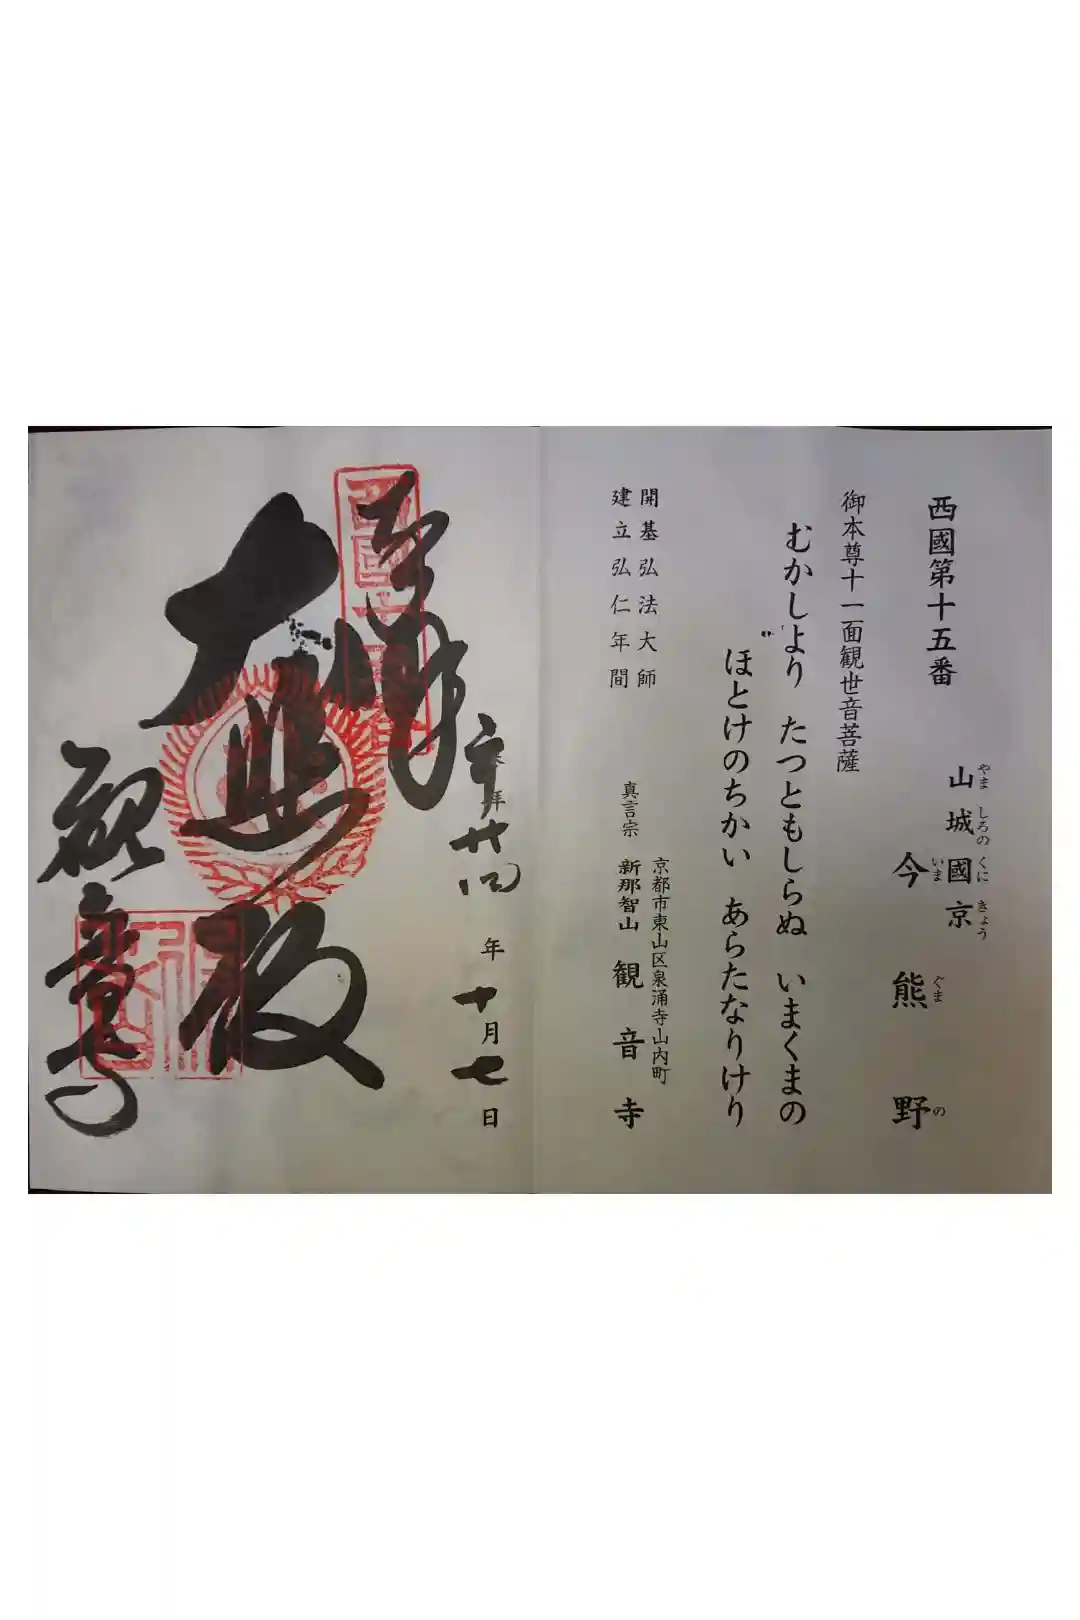 西國第十五番
山城國京
やま しろの くに きょう
今熊野
いま ぐま の
御本尊十一面観世音菩薩
むかしより たつともしらぬ いまくまの
ほとけのちかい あらたなりけり
開基弘法大師
建立弘仁年間
京都市東山区泉涌寺山内町
真言宗 新那智山 観音寺
平廿四年十月七日
奉拝
大悲殿
観音寺